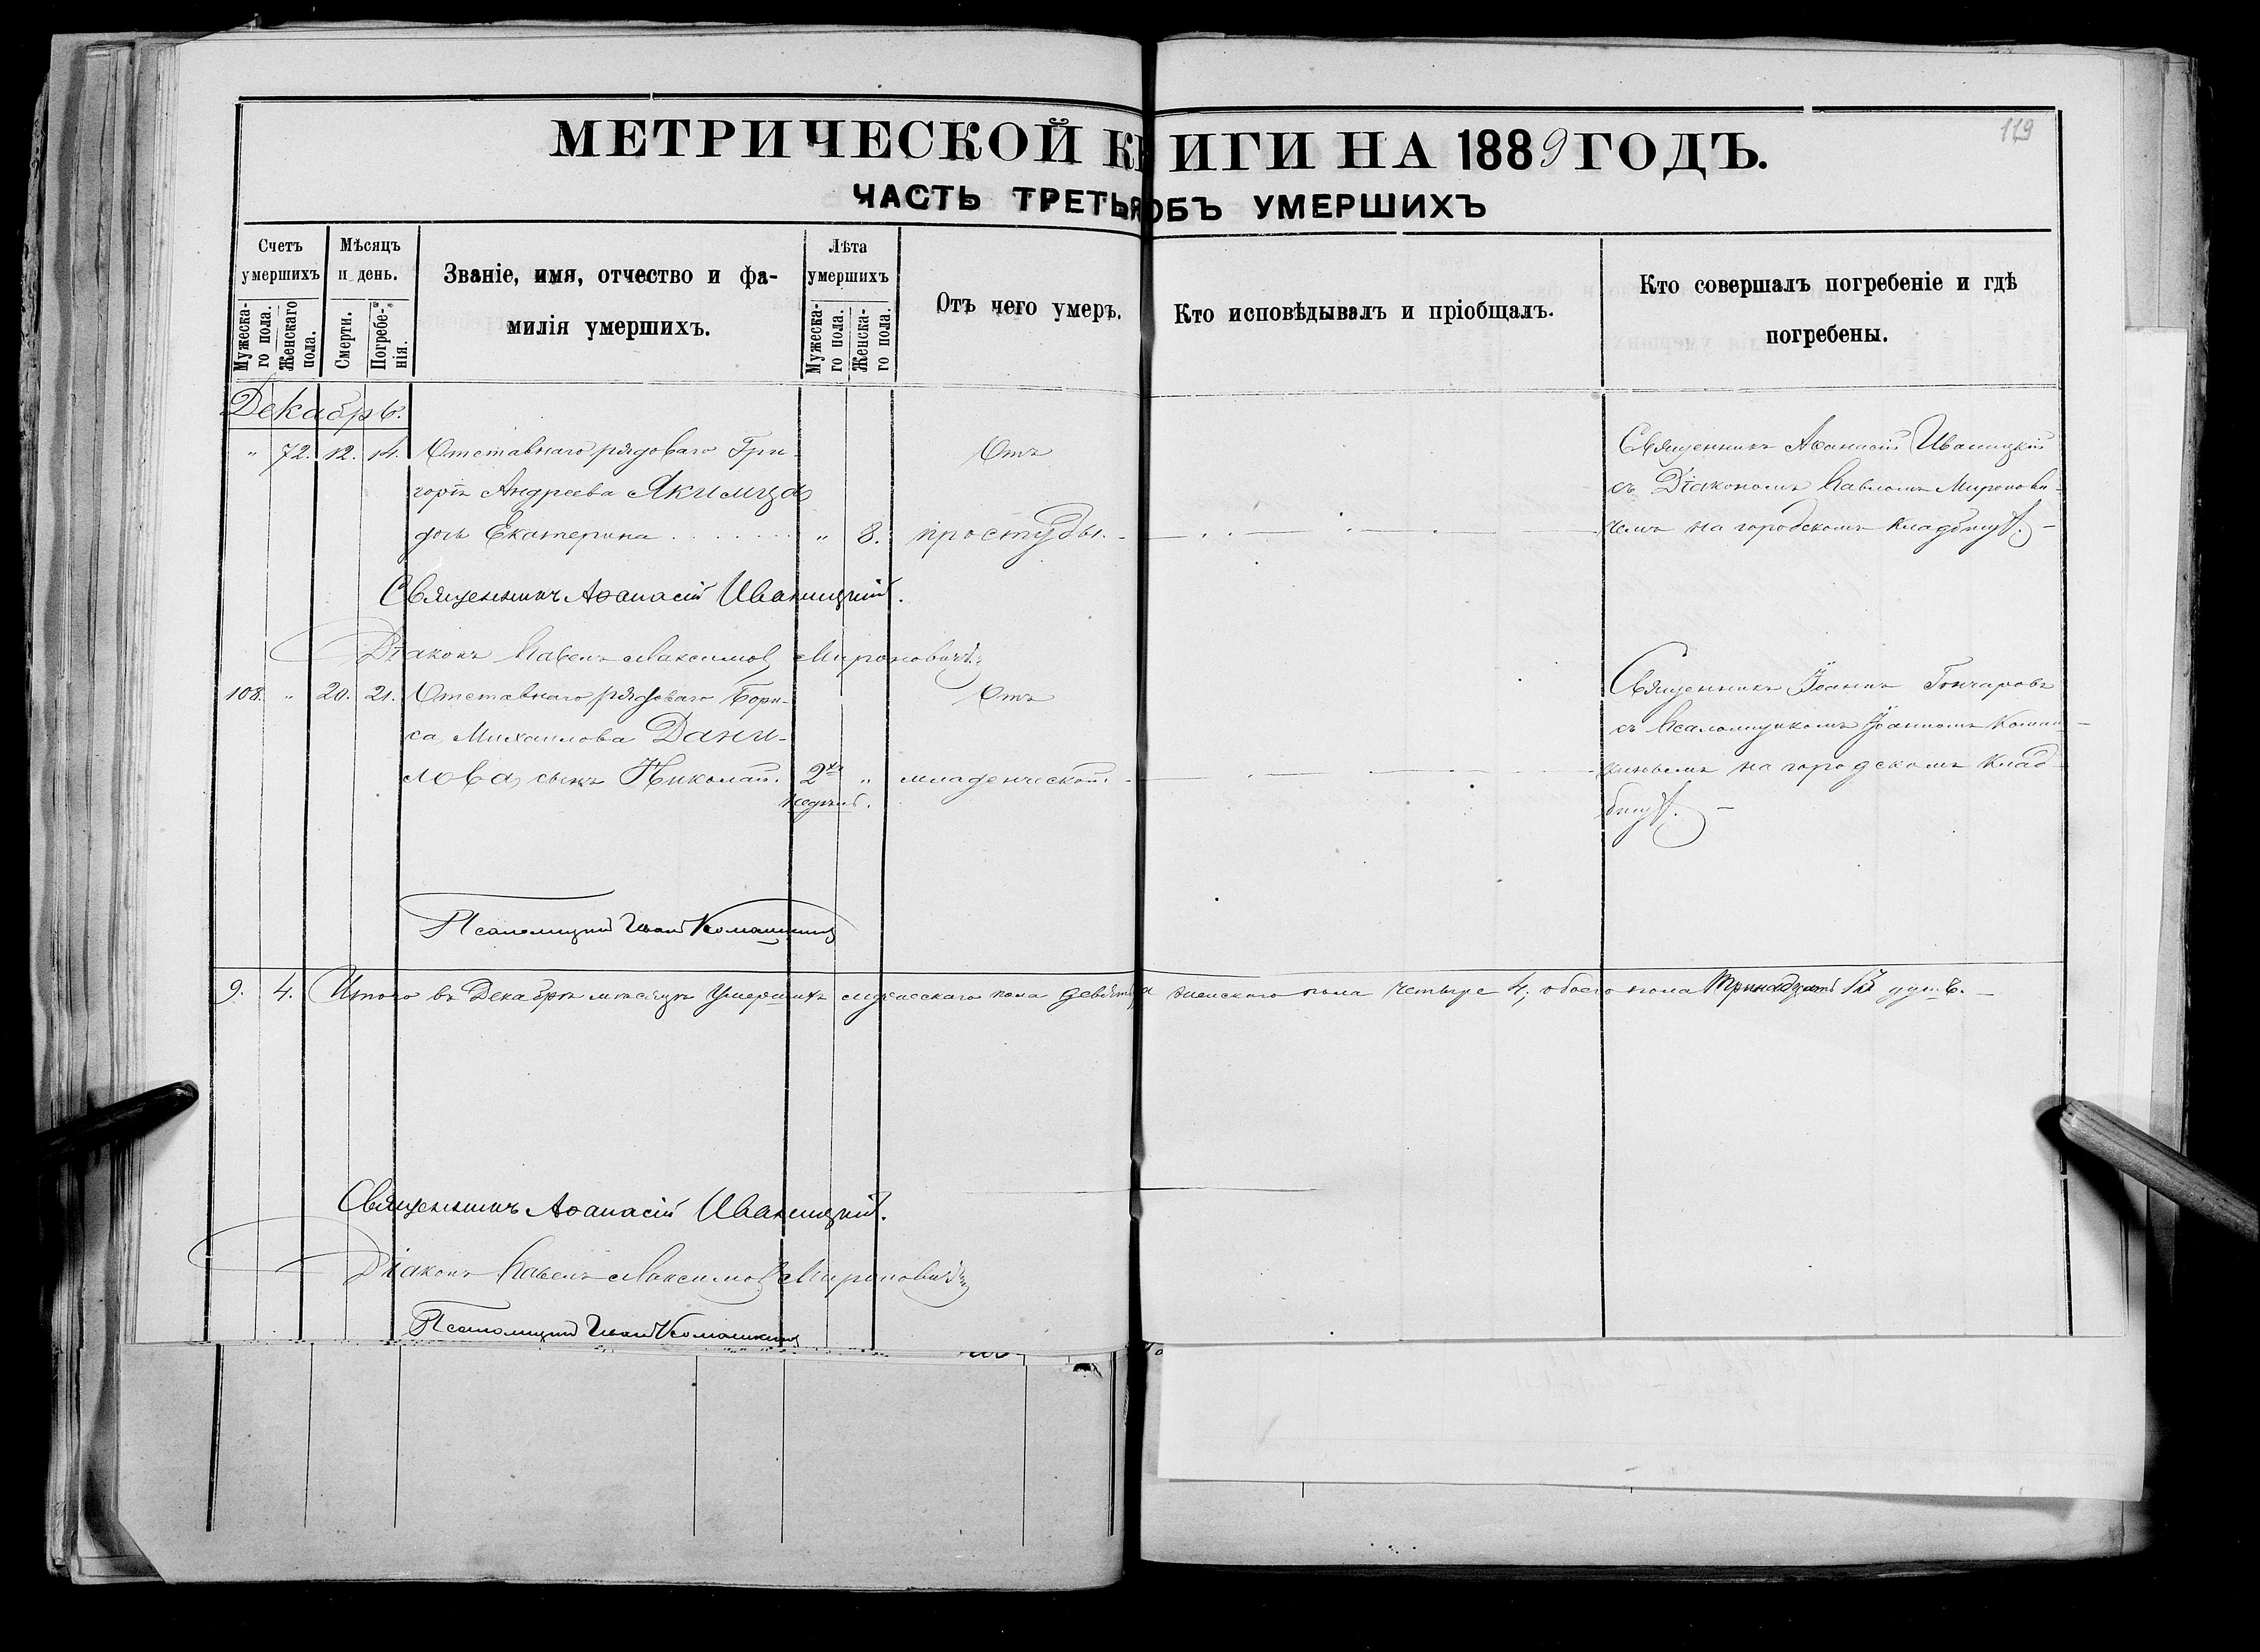 119
МЕТРИЧЕСКОЙ КНИГИ НА 1889 ГОДЪ.
ЧАСТЬ ТРЕТЬЯ ОБЪ УМЕРШИХЪ
Счетъ умершихъ
Мужеска-го пола.
Женскаго пола.
Мѣсяцъ и день.
Смерти.
Погребе-нія.
Званіе, имя, отчество и фа-
милія умершихъ.
Лѣта умершихъ
Мужеска-го пола.
Женска-го пола.
Отъ чего умеръ.
Кто исповѣдывалъ и пріобщалъ.
Кто совершалъ погребеніе и гдѣ
погребены.
Декабрь.
" 72. 12. 14. Отставнаго рядоваго Гри-
горія Андреева Якимца
дочь Екатерина " 8.
Отъ
простуды.
Священникъ Аѳанасій Иваницкій
съ Діакономъ Павломъ Миронови-
чемъ на городскомъ кладбищѣ.
Священникъ Аѳанасій Иваницкій.
Діаконъ Павелъ Максимов Мироновичъ
108. " 20. 21. Отставнаго рядоваго Бори-
са Михаилова Дани-
лова, сынъ Николай. 2хъ "
недѣль.
Отъ
младенческой.
Священникъ Іоаннъ Гончаровъ
съ Псаломщикомъ Іоанномъ Комаш-
кинымъ на городскомъ клад-
бищѣ.
Псаломщикъ Иванъ Комашкинъ
9. 4. Итого въ Декабрѣ мѣсяцѣ умершихъ мужескаго пола девять, а женскаго пола четыре 4, обоего пола тринадцать 13 душъ.
Священникъ Аѳанасій Иваницкій.
Діаконъ Павелъ Максимов Мироновичъ
Псаломщикъ Иванъ Комашкинъ